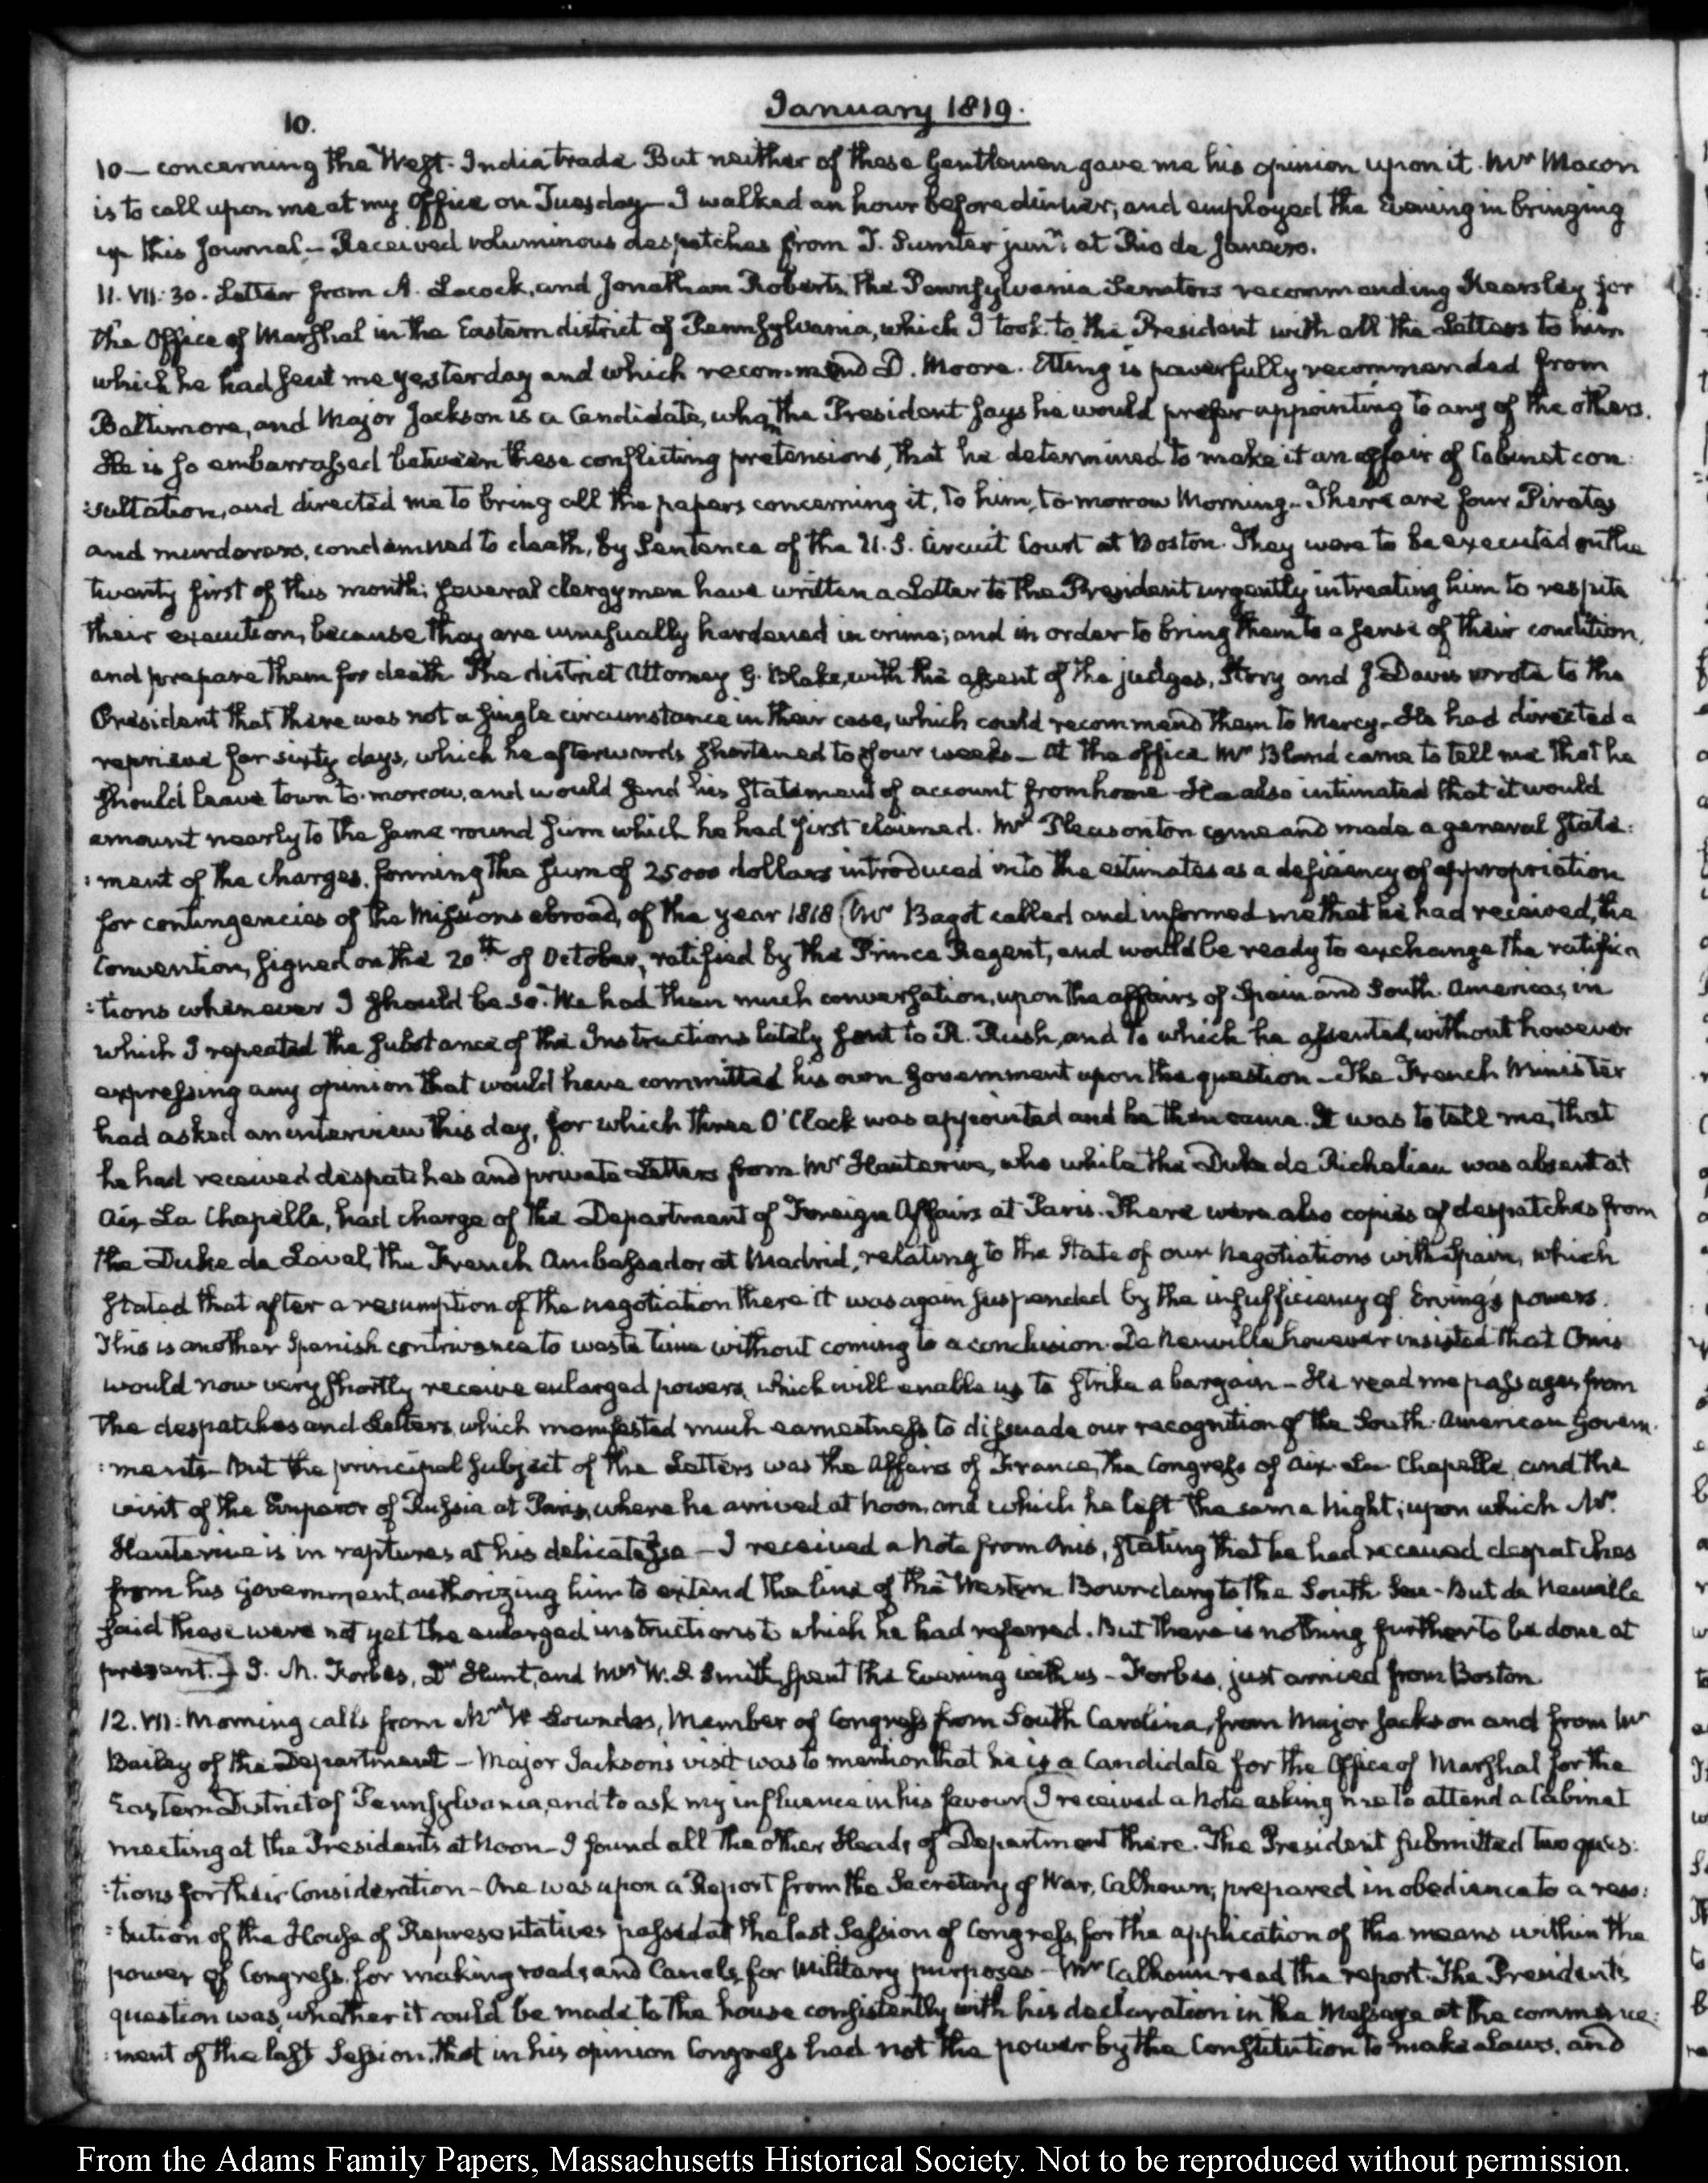 January 1819.
10.
10 — concerning the West-India trade But neither of these Gentlemen gave me his opinion upon it. Mr Macon
is to call upon me at my Office on Tuesday — I walked an hour before dinner, and employed the Evening in bringing
up this Journal. — Received voluminous despatches from T. Sumter junr. at Rio de Janeiro.
11. VII: 30. Letter from A. Lacock, and Jonathan Roberts, the Pennsylvania Senators recommending Kearsley for
the Office of Marshal in the Eastern district of Pennsylvania, which I took to the President with all the Letters to him
which he had sent me yesterday and which recommend D. Moore. Etting is powerfully recommended from
Baltimore, and Major Jackson is a Candidate, whom the President says he would prefer appointing to any of the others.
He is so embarrassed between these conflicting pretensions, that he determined to make it an affair of Cabinet con:
:sultation, and directed me to bring all the papers concerning it, to him, to-morrow Morning — There are four Pirates
and murderers, condemned to death, by Sentence of the U.S. Circuit Court at Boston. They were to be executed on the
twenty first of this month; several clergymen have written a Letter to the President urgently intreating him to respite
their execution, because they are unusually hardened in crime; and in order to bring them to a sense of their condition,
and prepare them for death. The district Attorney G. Blake, with the assent of the judges, Story and J. Davis wrote to the
President that there was not a single circumstance in their case, which could recommend them to Mercy. He had directed a
reprieve for sixty days, which he afterwards shortened to four weeks — At the office Mr Bland came to tell me that he
should leave town to-morrow, and would send his statement of account from home. He also intimated that it would
amount nearly to the same round sum which he had first claimed. Mr Pleasonton came and made a general state:
:ment of the charges, forming the sum of 25000 dollars introduced into the estimates as a deficiency of appropriation
for contingencies of the Missions abroad, of the year 1818 (Mr Bagot called and informed me that he had received, the
Convention, signed on the 20th of October, ratified by the Prince Regent, and would be ready to exchange the ratifica
:tions whenever I should be so. We had then much conversation, upon the affairs of Spain and South America, in
which I repeated the substance of the Instructions lately sent to R. Rush, and to which he assented, without however
expressing any opinion that would have committed his own Government upon the question — The French Minister
had asked an interview this day, for which three O'Clock was appointed and he then came. It was to tell me, that
he had received despatches and private Letters from Mr Hauterive, who while the Duke de Richelieu was absent at
Aix La Chapelle, had charge of the Department of Foreign Affairs at Paris. There were also copies of despatches from
the Duke de Laval, the French Ambassador at Madrid, relating to the State of our Negotiations with Spain, which
stated that after a resumption of the negotiation there it was again suspended by the insufficiency of Erving's powers.
This is another Spanish contrivance to waste time without coming to a conclusion. De Neuville however insisted that Onis
would now very shortly receive enlarged powers, which will enable us to strike a bargain — He read me passages from
the despatches and Letters, which manifested much earnestness to dissuade our recognition of the South-American Govern
:ments — But the principal subject of the Letters was the Affairs of France, the Congress of Aix-La Chapelle, and the
visit of the Emperor of Russia at Paris, where he arrived at Noon, and which he left the same Night; upon which Mr
Hauterive is in raptures at his delicatesse — I received a Note from Onis, stating that he had received despatches
from his Government, authorizing him to extend the line of the Western Boundary to the South Sea — But de Neuville
said these were not yet the enlarged instructions to which he had referred. But there is nothing further to be done at
present. —) J. M. Forbes, Dr Hunt, and Mrs W. S. Smith, spent the Evening with us — Forbes, just arrived from Boston.
12. VII: Morning calls from Mr W Lowndes, Member of Congress from South Carolina, from Major Jackson and from Mr
Bailey of the Department — Major Jackson's visit was to mention that he is a Candidate for the Office of Marshal for the
Eastern District of Pennsylvania, and to ask my influence in his favour (I received a Note asking me to attend a Cabinet
meeting at the Presidents at Noon — I found all the other Heads of Department there. The President submitted two ques:
:tions for their Consideration — One was upon a Report from the Secretary of War, Calhoun, prepared in obedience to a reso:
:lution of the House of Representatives passed at the last Session of Congress, for the application of the means within the
power of Congress, for making roads and Canals, for Military purposes — Mr Calhoun read the report. The President's
question was, whether it could be made to the house consistently with his declaration in the Message at the commence:
:ment of the last Session, that in his opinion Congress had not the power by the Constitution to make Laws, and
From the Adams Family Papers, Massachusetts Historical Society. Not to be reproduced without permission.